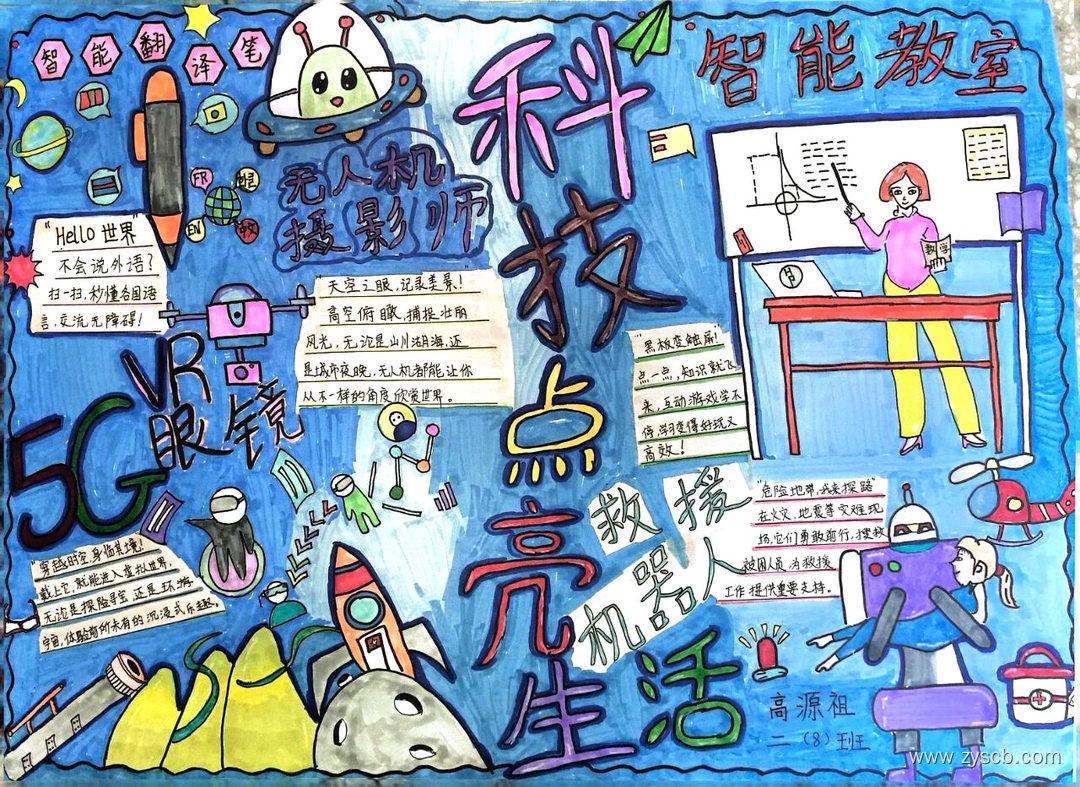 智能翻译笔
"Hello 世界"
不会说外语?
扫一扫,秒懂各国语
言,交流无障碍!
FR
EN
无人机
摄影师
"天空之眼,记录美景!
高空俯瞰,捕捉壮丽
风光,无论是山川湖海,还
是城市夜晚,无人机都能让你
从不一样的角度欣赏世界。
5G
VR
眼镜
"穿越时空,身临其境!
戴上它,就能进入虚拟世界,
无论是探险寻宝,还是环游
宇宙,体验前所未有的沉浸式乐趣。
科技点亮生活
智能教室
数学
"黑板变触屏!
点一点,知识就飞
来,互动游戏学不
停,学习变得好玩又
高效!
救援
机器人
"危险地带,我来探路"
在火灾、地震等灾难现
场,它们勇敢前行,搜救
被困人员,为救援
工作提供重要支持。
高源祖
二(8)班
www.zyscb.com